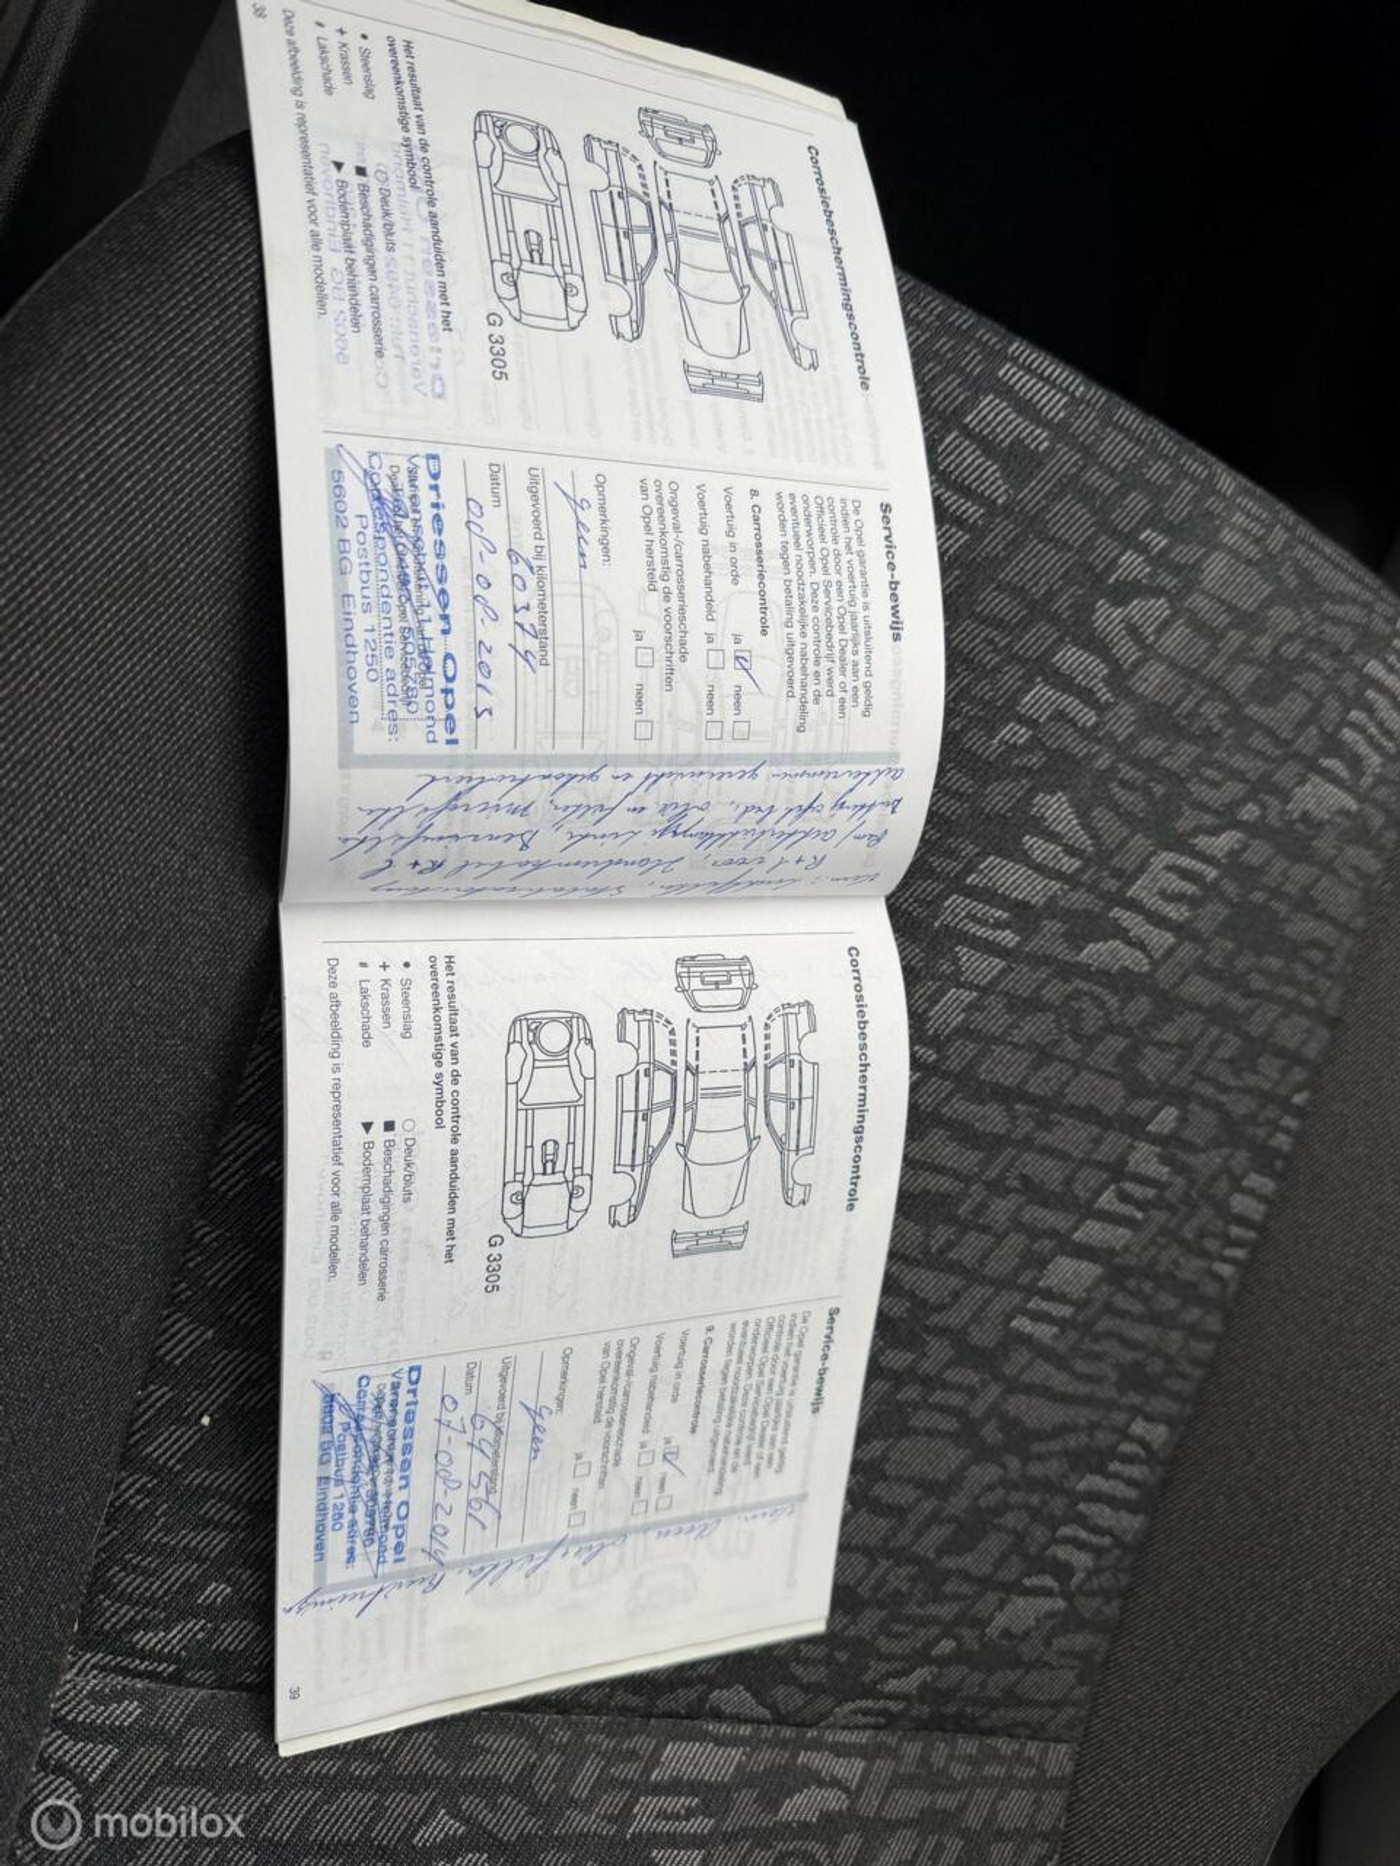 38
Corrosiebeschermingscontrole
G 3305
Het resultaat van de controle aanduiden met het
overeenkomstige symbool
• Steenslag
+ Krassen
# Lakschade
Deuk/bluts
■ Beschadigingen carrosserie
▶ Bodemplaat behandelen
Deze afbeelding is representatief voor alle modellen.
Service-bewijs
De Opel garantie is uitsluitend geldig
indien het voertuig jaarlijks aan een
controle door een Opel Dealer of een
Officieel Opel Servicebedrijf werd
onderworpen. Deze controle en de
eventueel noodzakelijke nabehandeling
worden tegen betaling uitgevoerd.
8. Carrosseriecontrole
Voertuig in orde ja neen
Voertuig nabehandeld ja neen
Ongeval-/carrosserieschade
overeenkomstig de voorschriften
van Opel hersteld ja neen
Opmerkingen:
geen
Uitgevoerd bij kilometerstand
60374
Datum
08-08-2013
Driessen Opel
Helmond
Correspondentie adres:
Postbus 1250
5602 BG Eindhoven
R + L
Corrosiebeschermingscontrole
G 3305
Het resultaat van de controle aanduiden met het
overeenkomstige symbool
• Steenslag
+ Krassen
# Lakschade
○ Deuk/bluts
■ Beschadigingen carrosserie
▶ Bodemplaat behandelen
Deze afbeelding is representatief voor alle modellen.
Service-bewijs
De Opel garantie is uitsluitend geldig
indien het voertuig jaarlijks aan een
controle door een Opel Dealer of een
Officieel Opel Servicebedrijf werd
onderworpen. Deze controle en de
eventueel noodzakelijke nabehandeling
worden tegen betaling uitgevoerd.
9. Carrosseriecontrole
Voertuig in orde ja neen
Voertuig nabehandeld ja neen
Ongeval-/carrosserieschade
overeenkomstig de voorschriften
van Opel hersteld ja neen
Opmerkingen:
geen
Uitgevoerd bij kilometerstand
64561
Datum
07-08-2014
Driessen Opel
Helmond
Correspondentie adres:
Postbus 1250
5602 BG Eindhoven
39
mobilox